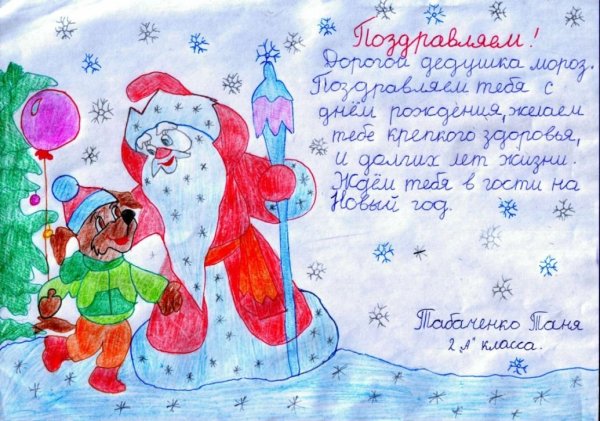 Поздравляем!
Дорогой дедушка мороз.
Поздравляем тебя с
днём рождения, желаем
тебе крепкого здоровья,
и долгих лет жизни.
Ждём тебя в гости на
Новый год.
Табаченко Таня
2 "А" класса.